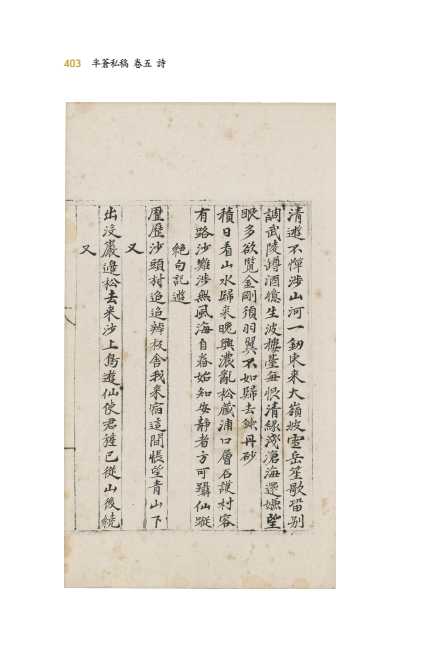 403 半蒼私稿 卷五 詩
清遊不憚涉山河一釰東來大嶺坡靈岳笙歌留別
調武陵罇酒憶生波樓臺每恨清緣淺滄海還嫌望
眼多欲覽金剛須羽翼不如歸去鍊丹砂
積日看山水歸來晩興濃亂松藏浦口層石護村容
有路沙難涉無風海自舂始知安靜者方可躡仙蹤
絶句記遊
歷歷沙頭村迢迢辨板舍我來宿這間悵望青山下
又
出沒巖邊松去來沙上鳥遊仙使君旌已從山後繞
又